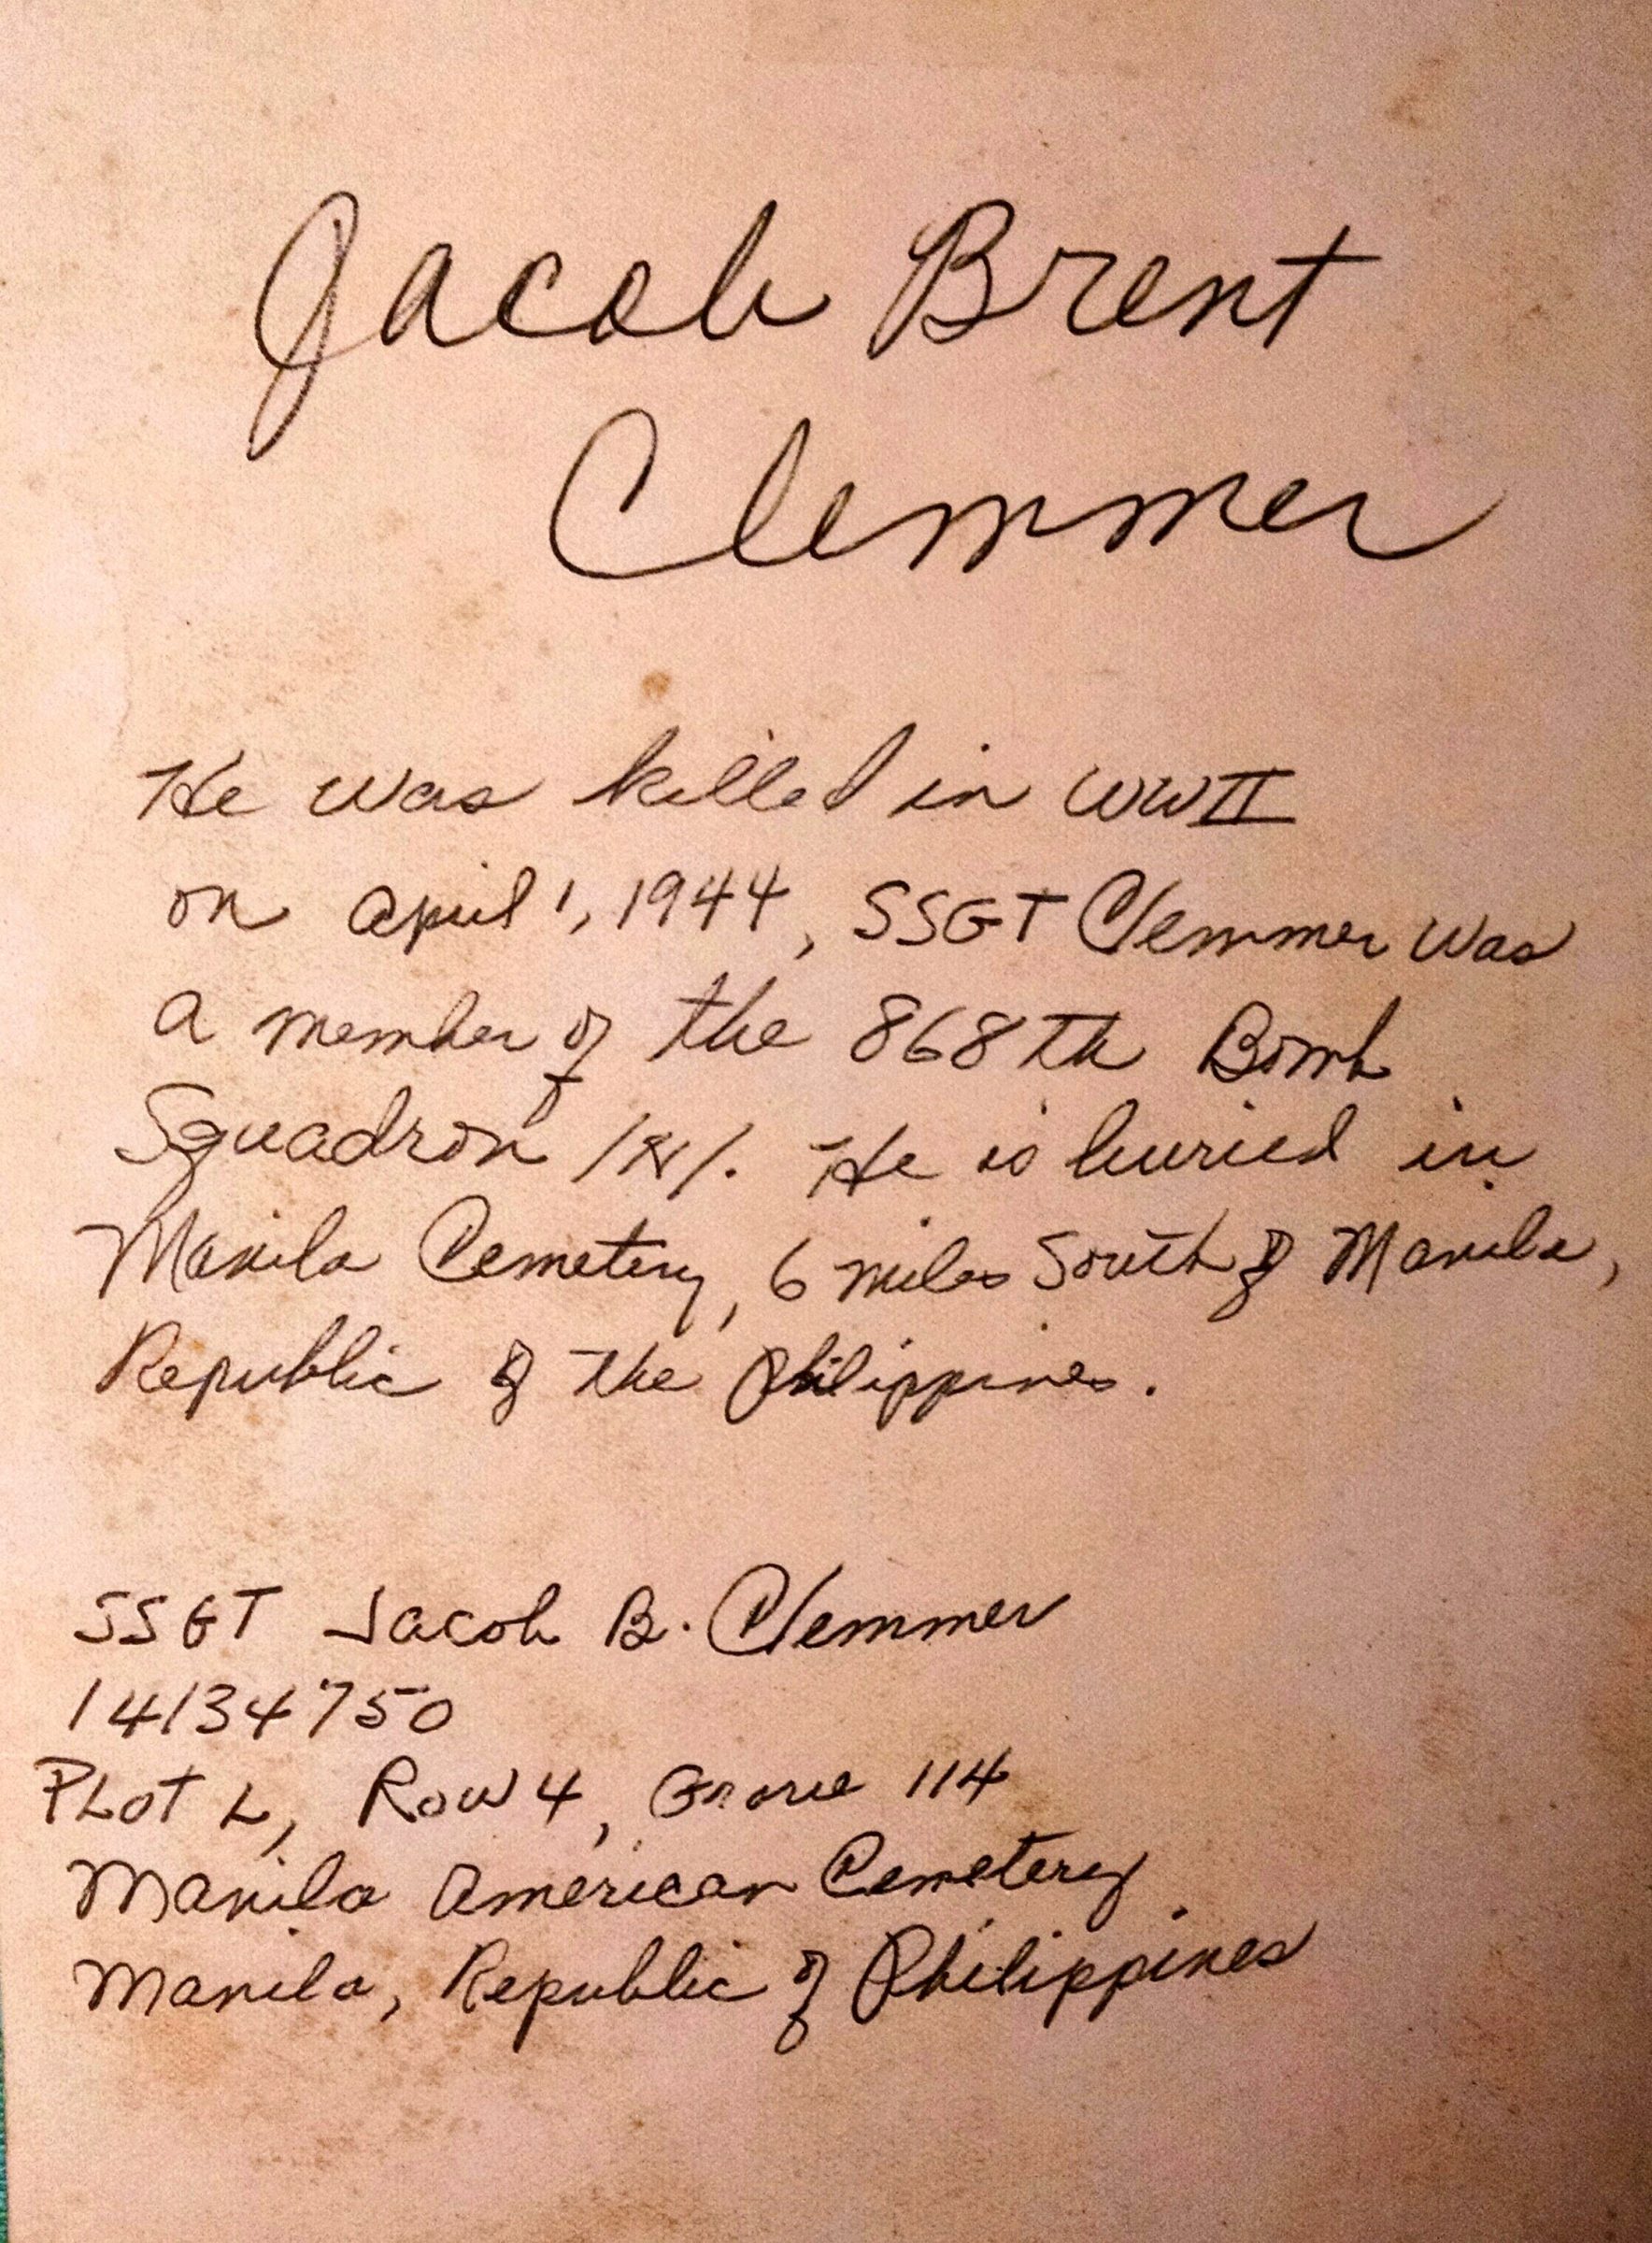 Jacob Brent
Clemmer
He was killed in WWII
on April 1, 1944, SSGT Clemmer was
a member of the 868th Bomb
Squadron /H/. He is buried in
Manila Cemetery, 6 miles South of Manila,
Republic of the Philippines.
SSGT Jacob B. Clemmer
14134750
PLOT L, Row 4, Grave 114
Manila American Cemetery
Manila, Republic of Philippines